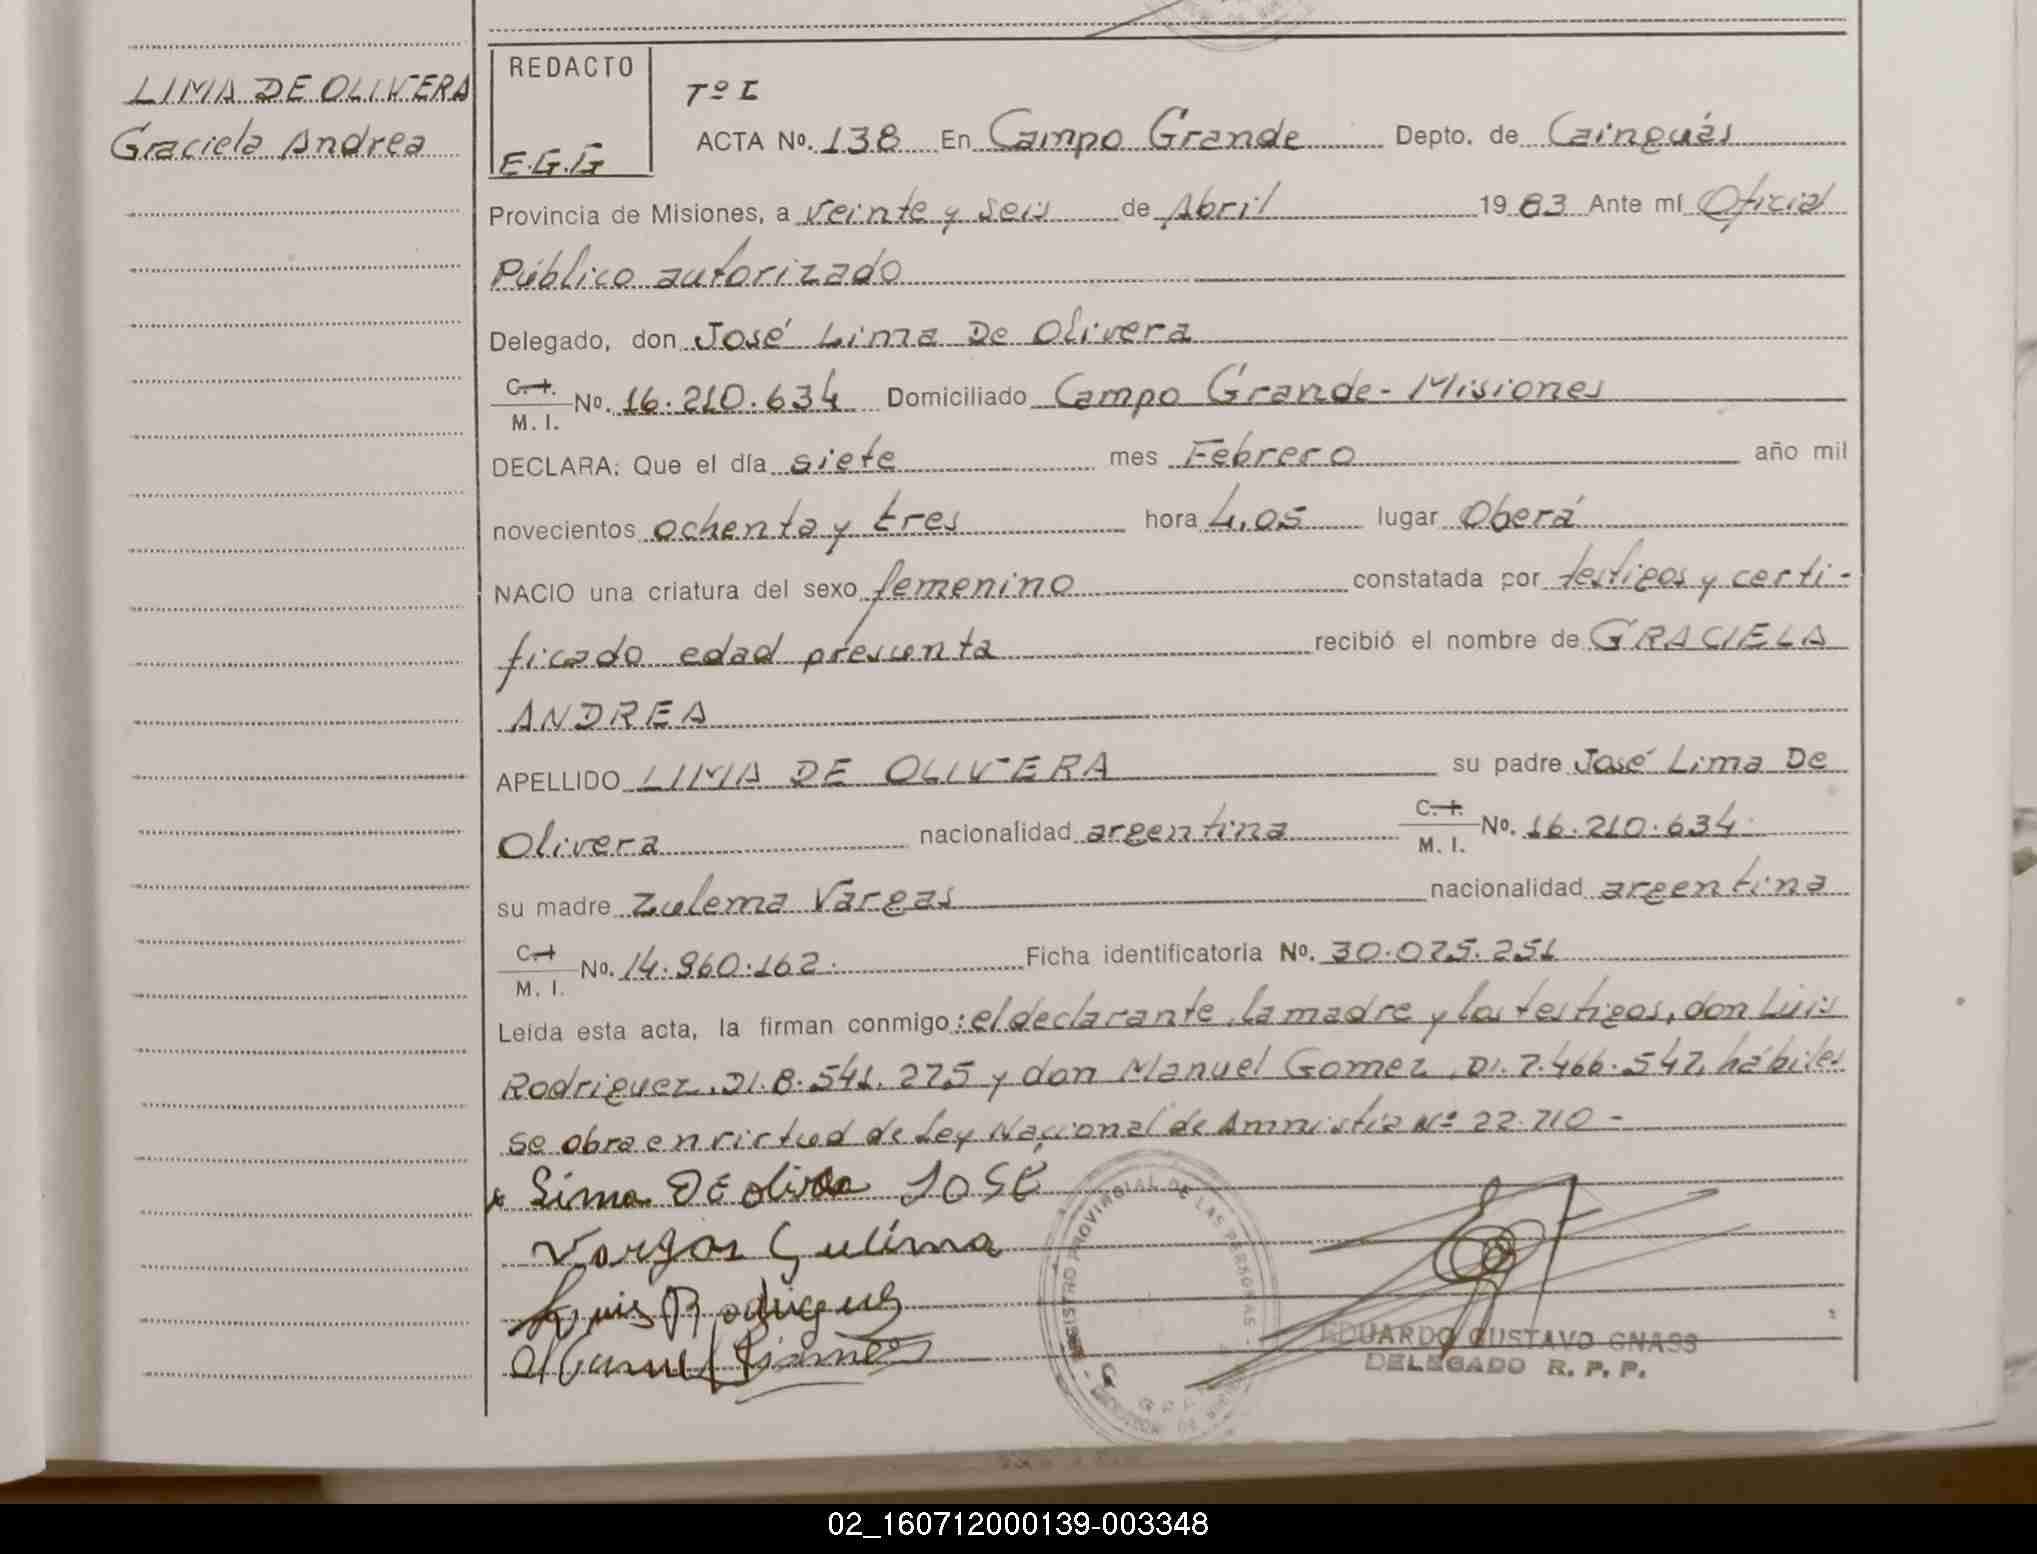 LIMA DE OLIVERA
Graciela Andrea
REDACTO
E.G.G
Tº I
ACTA Nº. 138 En Campo Grande Depto. de Cainguás
Provincia de Misiones, a veinte y seis de Abril 19 83 Ante mí Oficial
Público autorizado
Delegado, don José Lima De Olivera
C. I. M. I. Nº. 16.210.634 Domiciliado Campo Grande - Misiones
DECLARA: Que el día siete mes Febrero año mil
novecientos ochenta y tres hora 4,05 lugar Oberá
NACIO una criatura del sexo femenino constatada por testigos y certi-
ficado edad presunta recibió el nombre de GRACIELA
ANDREA
APELLIDO LIMA DE OLIVERA su padre José Lima De
Olivera nacionalidad argentina C. I. M. I. Nº. 16.210.634
su madre Zulema Vargas nacionalidad argentina
C. I M. I. Nº. 14.960.162. Ficha identificatoria Nº. 30.075.251
Leída esta acta, la firman conmigo: el declarante, la madre y los testigos, don Luis
Rodriguez, DI. 8.541.275 y don Manuel Gomez, DI. 7.466.547, hábiles
se obra en virtud de Ley Nacional de Amnistia Nº 22.710 -
x Lima DE olivera JOSÉ
Vargas Sulima
Luis Rodriguez
REGISTRO PROVINCIAL DE LAS PERSONAS
EDUARDO GUSTAVO GNASS
DELEGADO R. P. P.
02_160712000139-003348